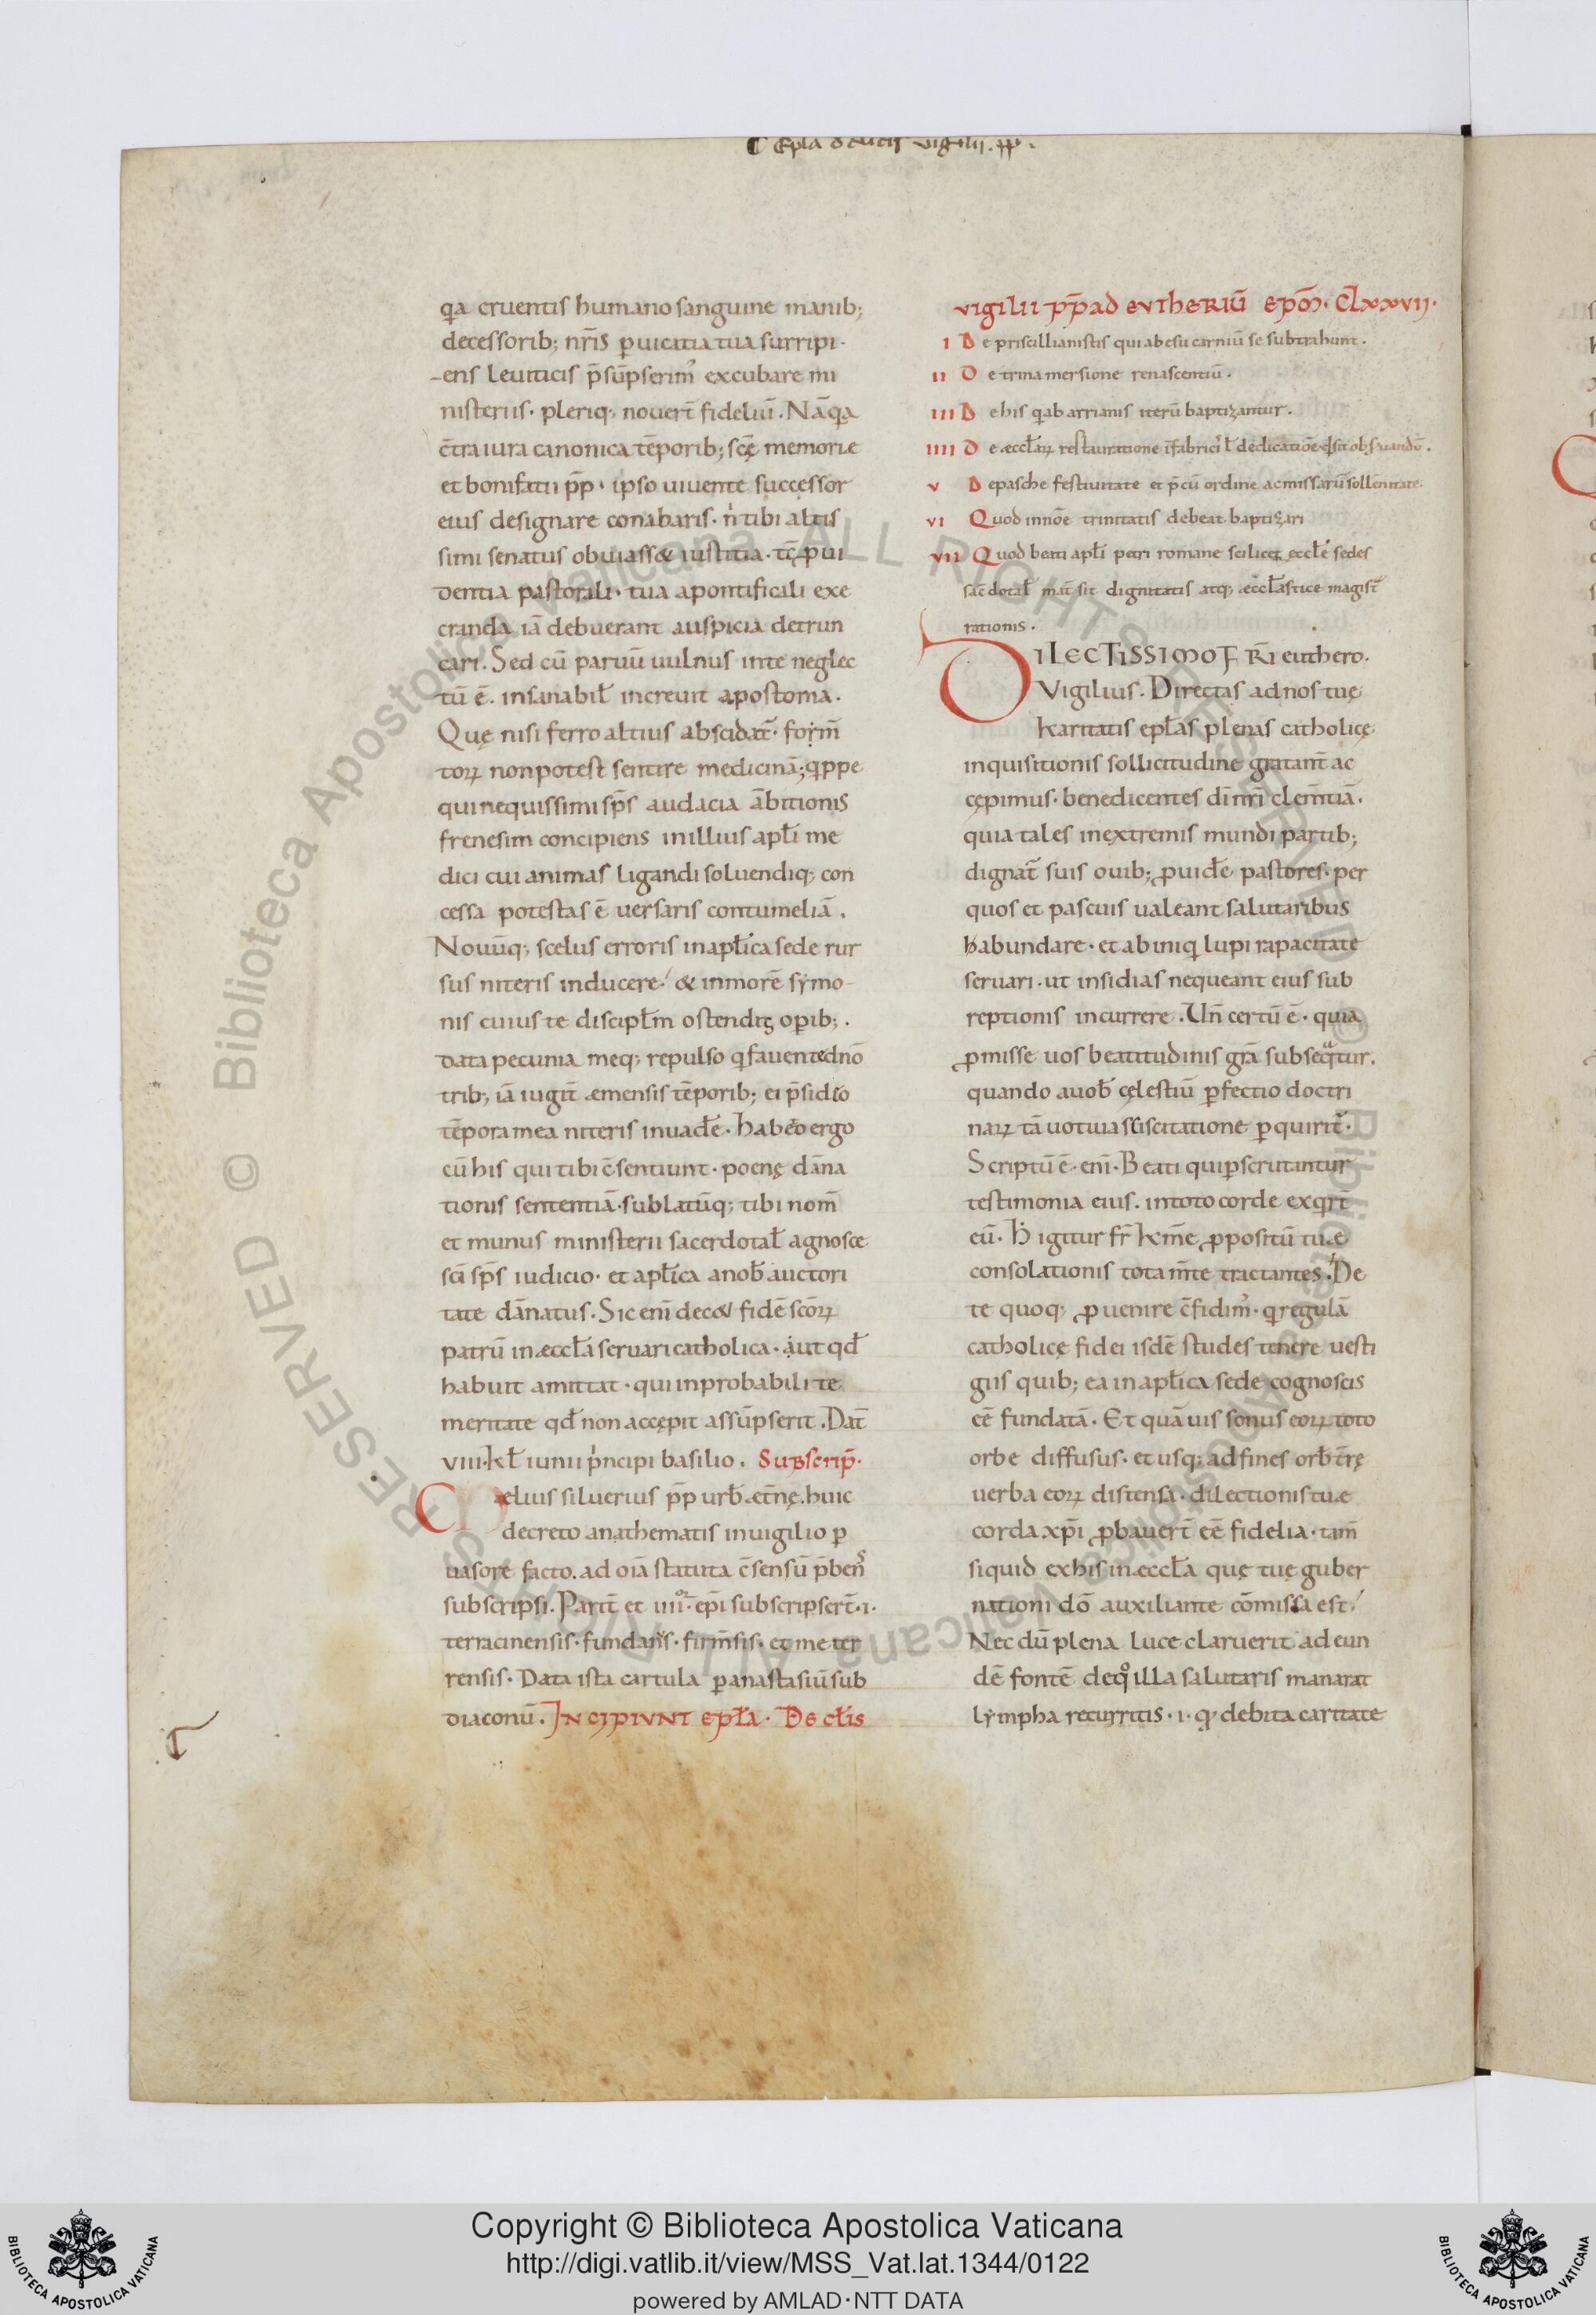 qa cruentis humano sanguine manib;
decessorib; nr̄is ꝑuicatia tua surripi-
-ens leuiticis p̄sūpserim' excubare mi
nisteriis · pleriq; nouer̄t fideliū. Nā qa
c̄tra iura canonica tēporib; scę memorie
et bonifatii pp̄ · ipso uiuente successor
eius designare conabaris · n̄ tibi altis
simi senatus obuiass& iustitia · tc̄ ꝓui
dentia pastorali · tua a pontificali exe
cranda iā debuerant auspicia detrun
cari. Sed cū paruū uulnus in te neglec
tū ē. insanabil̄ increuit apostoma.
Quę nisi ferro altius abscidat̄ · form̄
toꝝ non potest sentire medicinā; qppe
qui nequissimi sp̄s audacia ābitionis
frenesim concipiens in illius apl̄i me
dici cui animas ligandi soluendiq; con
cessa potestas ē uersaris contumeliā.
Nouūq; scelus erroris in apl̄ica sede rur
sus niteris inducere. & in morē symo-
nis cuius te discipl̄m ostendis opib;.
data pecunia meq; repulso q fauente dnō
trib; iā iugit̄ emensis tēporib; ei p̄sideo
tēpora mea niteris inuade. habeto ergo
cū his qui tibi c̄sentiunt · poenę dāna
tionis sententiā · sublatūq; tibi nom̄
et munus ministerii sacerdotal̄ agnosce
sci sp̄s iudicio · et apl̄ica a nob̄ auctori
tate dānatus. Sic eni dec& fidē scōꝝ
patrū in æccl̄a seruari catholica · aut qd̄
habuit amittat · qui inprobabili te
meritate qd̄ non accępit assūpserit. Dat̄
viii · kl̄ iunii p'ncipi basilio. Subscrip̄.
Celius siluerius pp̄ urb̄ et̄nę. huic
decreto anathematis in uigilio ꝑ
uasore facto. ad oiā statuta c̄sensū p̄bens
subscripsi. Parit̄ et iiii or. epi subscripser̄t · i ·
terracinensis · fundan̄s · firm̄sis · et meter
rensis · Data ista cartula ꝑ anastasiū sub
diaconū. Incipiunt epl̄a · Decl̄is
vigilii pp̄ ad eutheriū epōm · Clxxvii ·
i De priscillianistis qui ab esu carniū se subtrahunt.
ii De trina mersione renascentiū.
iii De his q ab arrianis iterū baptizantur.
iiii De æccl̄aꝝ restauratione
v De pasche festiuitate et p̄cū ordine ac missarū sollēnitate.
vi Quod in nōe trinitatis debeat baptizari
vii Quod beati apl̄i petri romane scilicet eccl̄e sedes
sac̄dotal̄ mat̄ sit dignitatis atq; æccl̄astice magist̄
rationis.
Dilectissimo frr̄i euthero.
Vigilius. Directas ad nos tuę
karitatis epl̄as plenas catholicę
inquisitionis sollicitudine gratant̄ ac
cępimus · benedicentes dī nr̄i clem̄tiā.
quia tales in extremis mundi partib;
dignat̄ suis ouib; ꝓuide pastores · per
quos et pascuis ualeant salutaribus
habundare · et ab iniq lupi rapacitate
seruari · ut insidias nequeant eius sub
reptionis incurrere. Un̄ certū ē · quia
ꝓmisse uos beatitudinis grā subseqtur.
quando a uob̄ cęlestiū ꝑfectio doctri
naꝝ tā uotiua suscitatione ꝑquirit̄.
Scriptū ē · eni · Beati qui ꝑscrutantur
testimonia eius. in toto corde exqrt̄
eū. h igitur fr̄ km̄e ꝓpositū tuæ
consolationis tota m̄te tractantes. De
te quoq; ꝓuenire c̄fidim' · q regulā
catholicę fidei isdē studes tenere uesti
giis quib; ea in apl̄ica sede cognoscis
eē fundatā. Et quāuis sonus eoꝝ toto
orbe diffusus · et usq; ad fines orb̄ t̄rę
uerba eoꝝ distensa · dilectionis tuæ
corda xpi ꝓbauer̄t eē fidelia · tam̄
siquid ex his in æccl̄a quę tuę guber
nationi dō auxiliante cōmissa est.
Nec dū plena luce claruerit ad eun
dē fontē de quo illa salutaris manarat
lympha recurritis · i · q debita caritate
Copyright © Biblioteca Apostolica Vaticana
http://digi.vatlib.it/view/MSS_Vat.lat.1344/0122
powered by AMLAD·NTT DATA
BIBLIOTECA APOSTOLICA VATICANA
BIBLIOTECA APOSTOLICA VATICANA